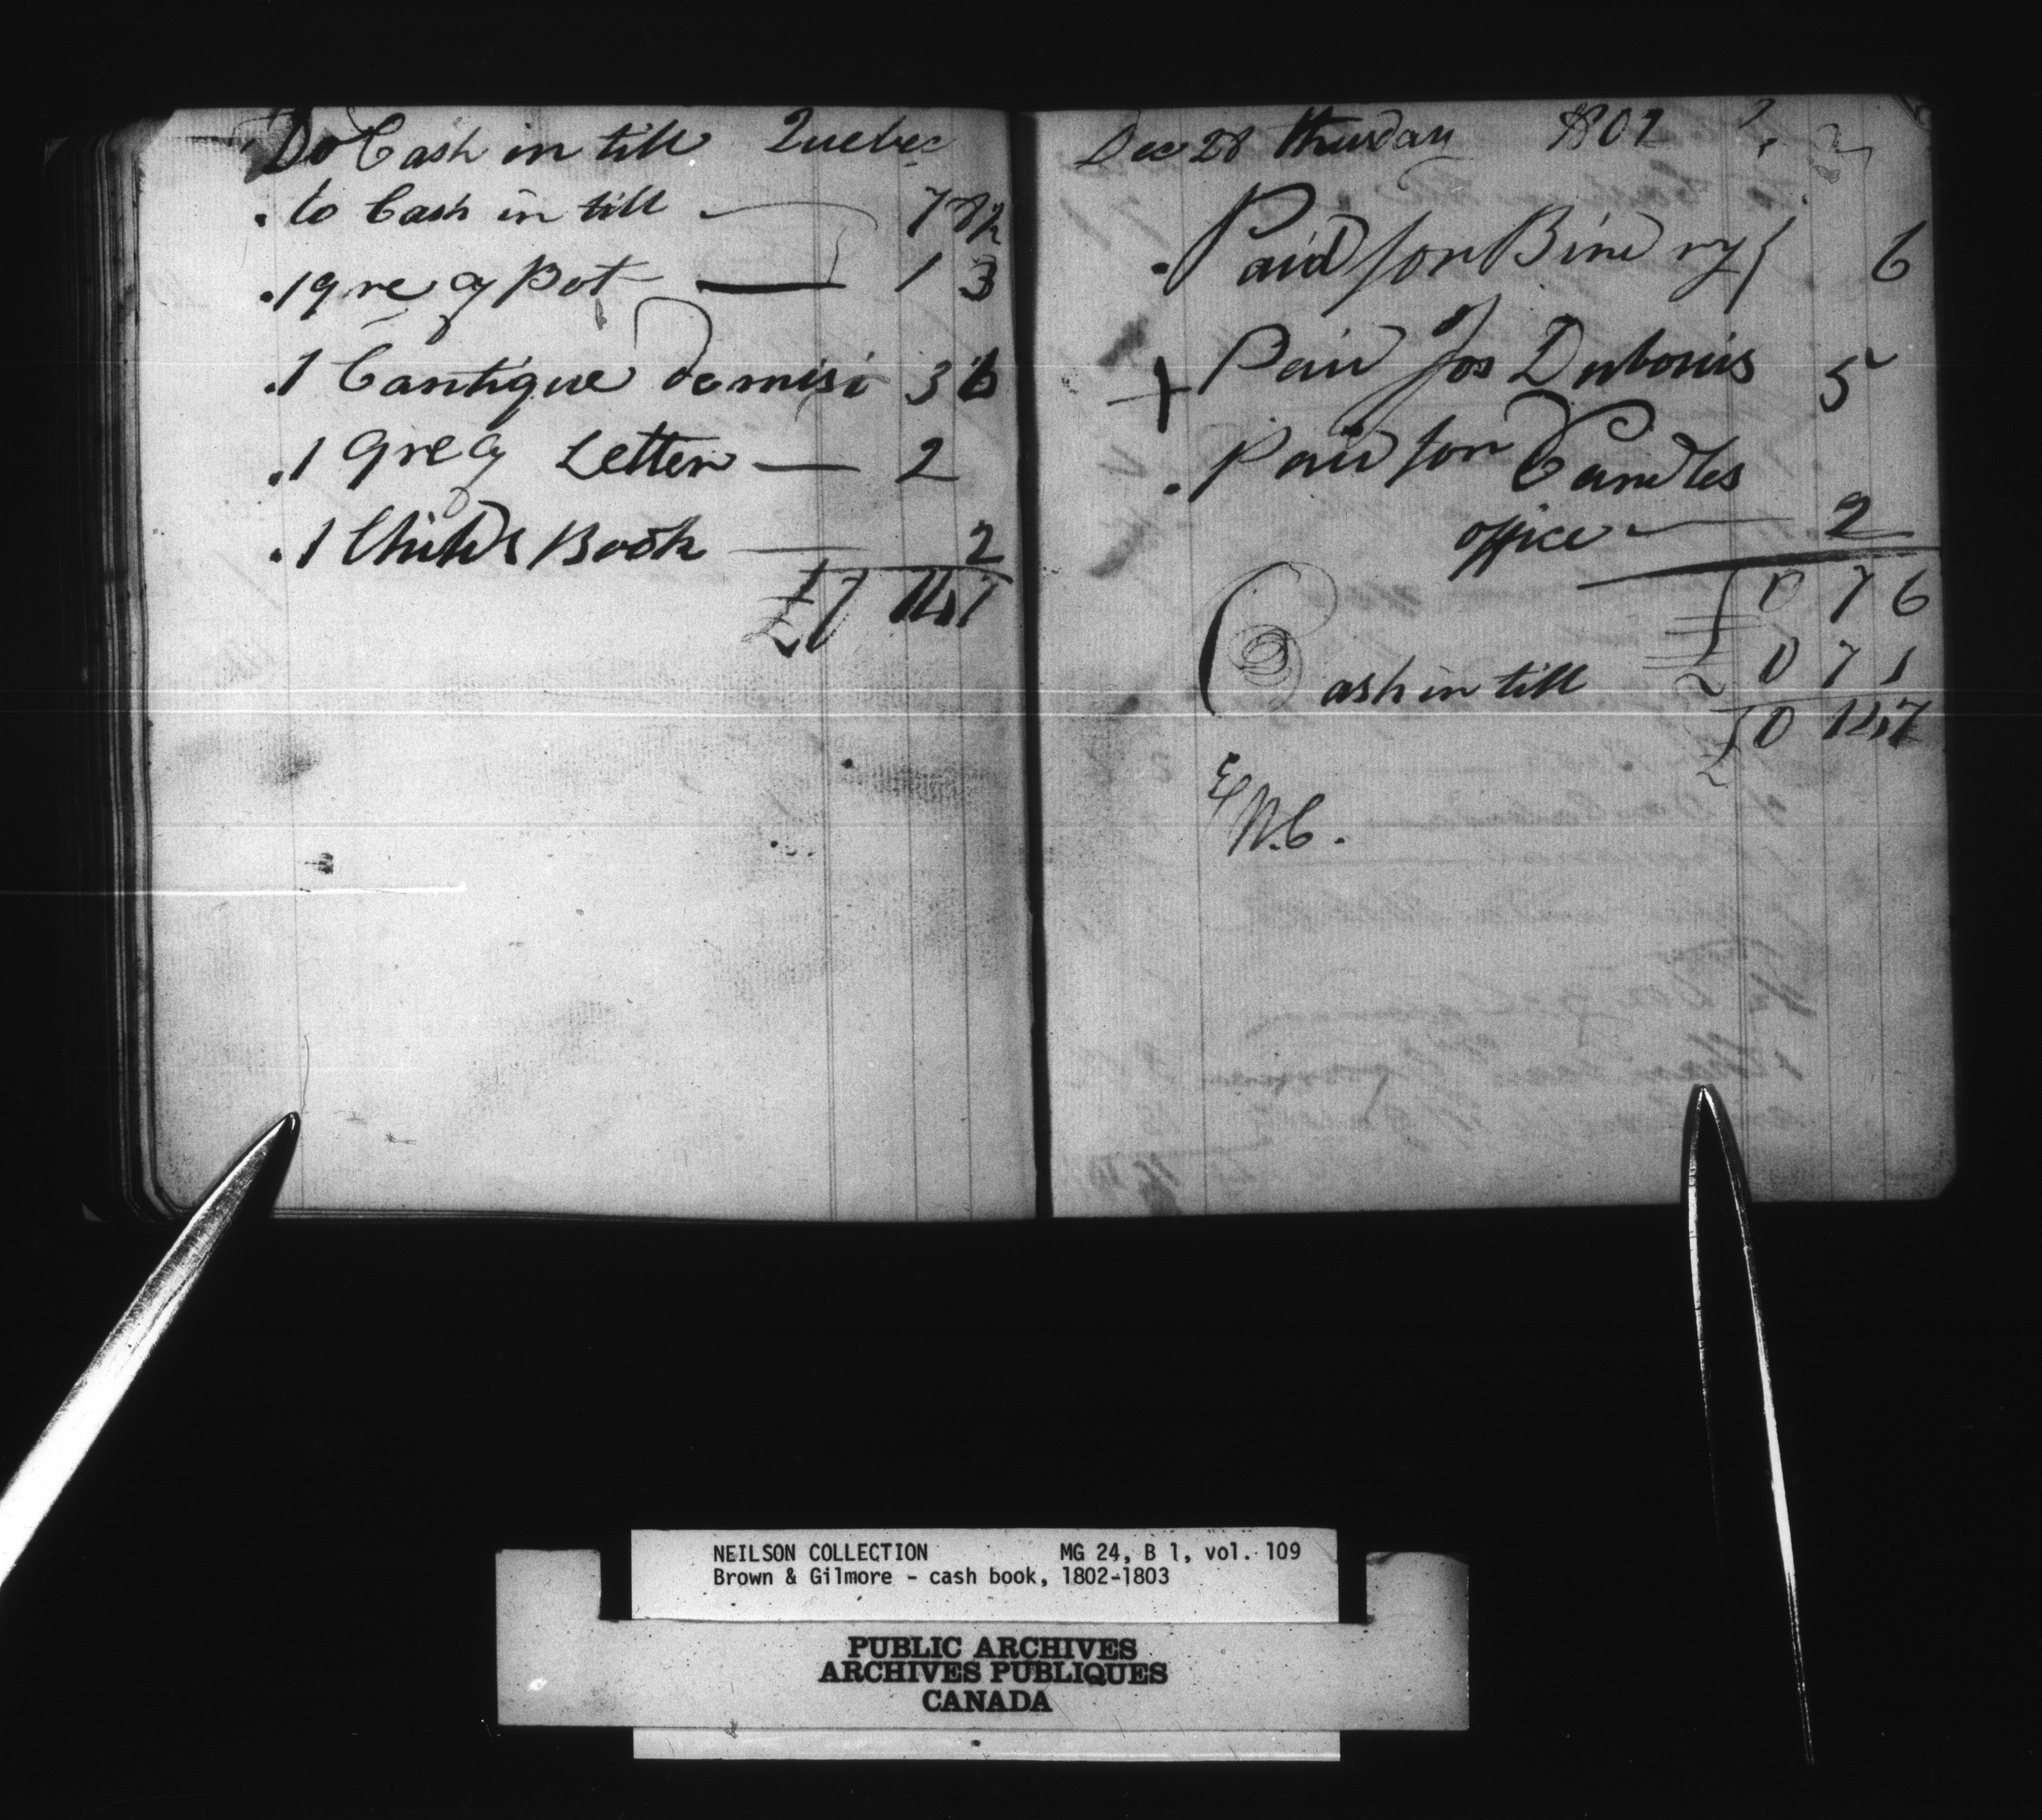 Do Cash in till Quebec
. to Cash in till — 7 8½
. 1 qre of Pot — 1 3
. 1 Cantique demisi 3 6
. 1 qre of Letter — 2
. 1 Childs Book — 2
£ 14 7
Dec 28 thusday 1802
. Paid for Bindry 6
+ Paid Jos Dubouis 5
. Paid for Candles
office — 2
£ 0 7 6
Cash in till £ 0 7 1
£ 0 14 7
W.C.
NEILSON COLLECTION MG 24, B 1, vol. 109
Brown & Gilmore - cash book, 1802-1803
PUBLIC ARCHIVES
ARCHIVES PUBLIQUES
CANADA